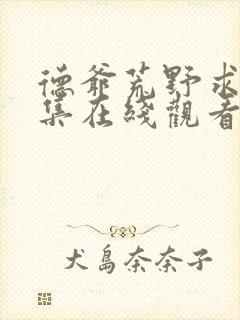 德爺荒野求
集在綫觀看
犬島奈奈子